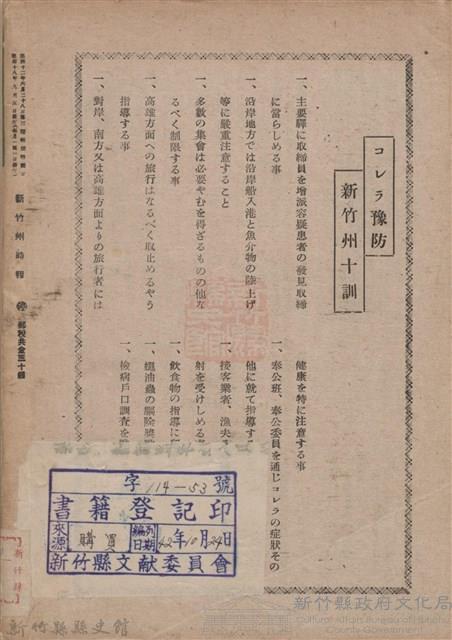 コレラ豫防
新竹州十訓
一、主要驛に取締員を增派容疑患者の發見取締
に當らしめる事
一、沿岸地方では沿岸船入港と魚介物の陸上げ
等に嚴重注意すること
一、多數の集會は必要やむを得ざるものの他な
るべく制限する事
一、高雄方面への旅行はなるべく取止めるやう
指導する事
一、對岸、南方又は高雄方面よりの旅行者には
健康を特に注意する事
一、奉公班、奉公委員を通じコレラの症狀その
他に就て指導す
一、接客業者、漁夫
射を受けしめる
一、飮食物の指導に
一、蠅油蟲の驅除
一、檢病戶口調査を
新竹州時報
郵稅共金三十錢
字114-53號
書籍登記印
來源 購買 編列日期 42年10月24日
新竹縣文獻委員會
新竹縣史館
新竹縣政府文化局
Cultural Affairs Bureau of Hsinchu County Government